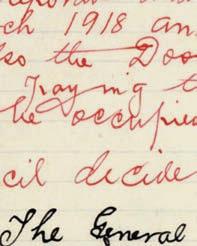 ch 1918 an
so the Doo
Traying t
the occupie
cil decide
The General